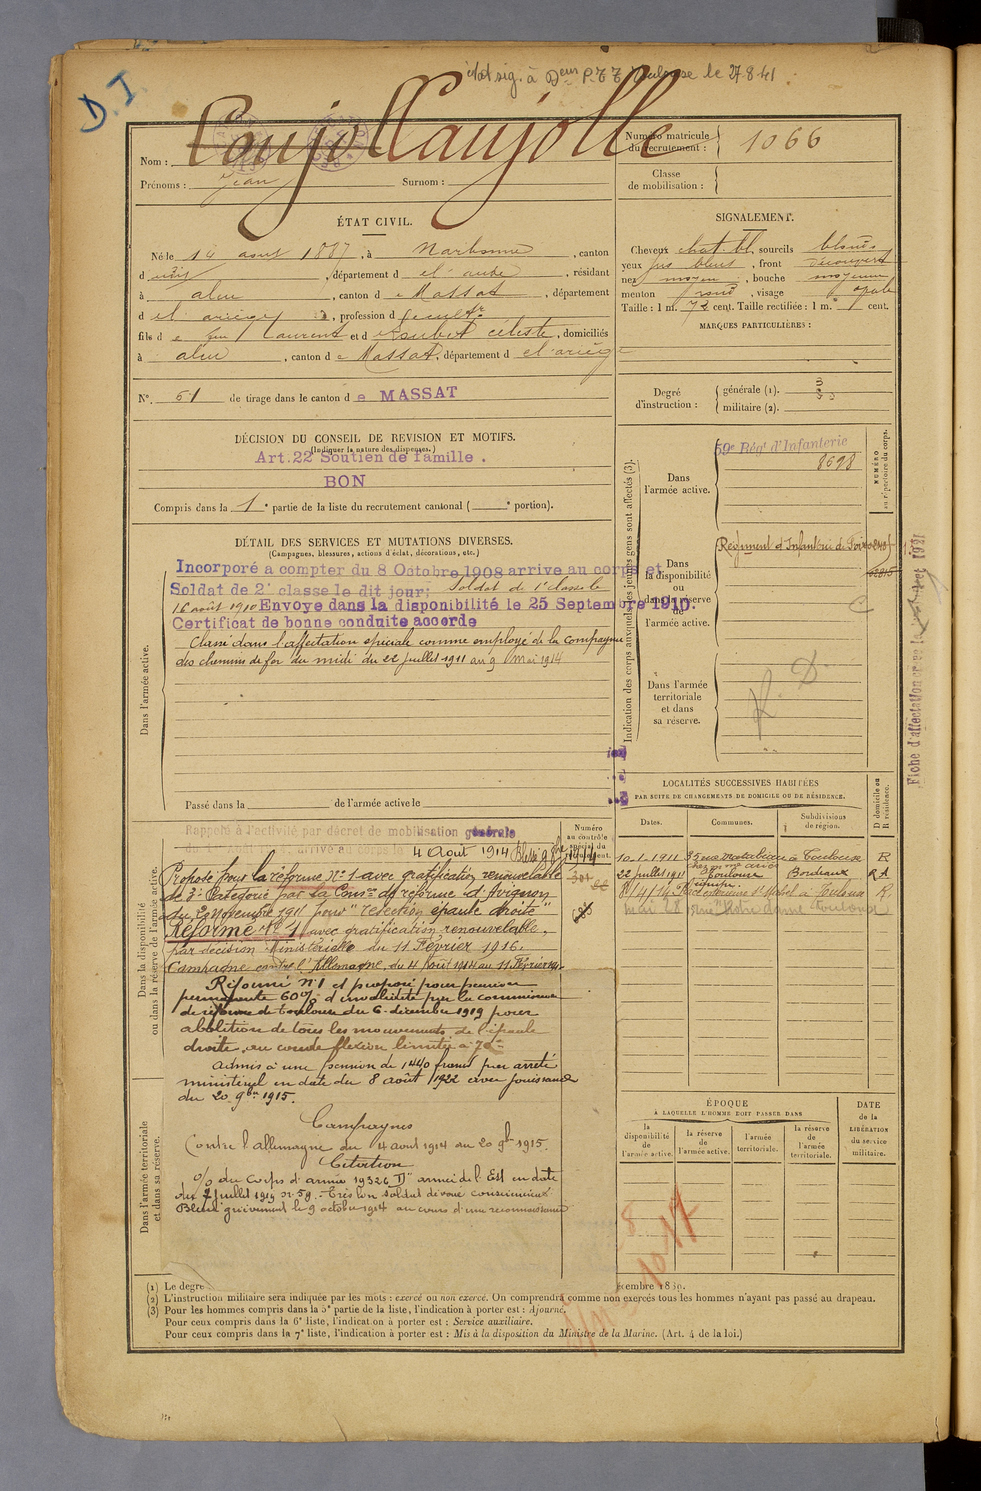 D. I.
état sig. à Don P.T.T. Toulouse le 27.8.41
Caujolle
Nom :
Prénoms : Jean Surnom :
Numéro matricule du recrutement : 1066
Classe de mobilisation :
ÉTAT CIVIL.
Né le 14 août 1887, à Narbonne, canton
d udit, département d el'aude, résidant
à aleu, canton d e Massat, département
d el ariège, profession d
fils d e feu Laurent et d e Soubet céleste, domiciliés
à aleu, canton d e Massat, département d el'ariège
N°. 61 de tirage dans le canton d e MASSAT
SIGNALEMENT.
Cheveux chat. bl. sourcils blonds
yeux gris bleus, front découvert
nez moyen, bouche moyenne
menton rond, visage ovale
Taille : 1 m. 73 cent. Taille rectifiée : 1 m. cent.
MARQUES PARTICULIÈRES :
Degré d'instruction :
générale (1). 3
militaire (2).
DÉCISION DU CONSEIL DE REVISION ET MOTIFS.
(Indiquer la nature des dispenses.)
Art.22 Soutien de famille.
BON
Compris dans la 1e partie de la liste du recrutement cantonal ( e portion).
DÉTAIL DES SERVICES ET MUTATIONS DIVERSES.
(Campagnes, blessures, actions d'éclat, décorations, etc.)
Dans l'armée active.
Incorporé a compter du 8 Octobre 1908 arrive au corps et
Soldat de 2e classe le dit jour; Soldat de 1e classe le
16 août 1910 Envoye dans la disponibilité le 25 Septembre 1910.
Certificat de bonne conduite accorde
Classé dans l'affectation spéciale comme employé de la Compagnie
des chemins de fer du midi du 22 juillet 1911 au 9 Mai 1914
Passé dans la de l'armée active le
Indication des corps auxquels les jeunes gens sont affectés (3).
NUMÉRO au répertoire du corps.
Dans l'armée active.
59e Régt d'Infanterie
8698
Dans la disponibilité ou dans la réserve de l'armée active.
Régiment d'Infanterie de Foix
Dans l'armée territoriale et dans sa réserve.
R. D.
Fiche d'affectation créée le 1921
LOCALITÉS SUCCESSIVES HABITÉES
PAR SUITE DE CHANGEMENTS DE DOMICILE OU DE RÉSIDENCE.
Dates. Communes. Subdivisions de région. D domicile ou R résidence.
10-1-1911 35 rue Matabiau à Toulouse R
22 juillet 1911 Toulouse Bordeaux RA
Toulouse R
mai 28 rue Notre dame Toulouse
Dans la disponibilité ou dans la réserve de l'armée active.
Numéro au contrôle spécial du recrutement.
Rappelé à l'activité par décret de mobilisation générale
arrivé au corps le 4 Août 1914 Blessé 9 8bre 1914
Proposé pour la réforme N° 1 avec gratification renouvelable
de 3e Catégorie par la Conson de réforme d'Avignon
du 20 novembre 1911 pour "résection épaule droite"
Réformé N° 1 avec gratification renouvelable,
par décision Ministérielle du 11 Février 1916.
Campagne contre l'Allemagne, du 4 Août 1914 au 11 Février 191
Réformé n° 1 et proposé pour pension
permanente 60% d'invalidité par la commission
de réforme de toulouse du 6 décembre 1919 pour
abolition de tous les mouvements de l'épaule
droite, au coude flexion limitée à
Admis à une pension de 1440 francs par arrêté
ministériel en date du 8 août 1922 avec jouissance
du 20 9bre 1915.
Dans l'armée territoriale et dans sa réserve.
Campagnes
Contre l'allemagne du 4 aout 1914 au 20 9bre 1915
Citation
O/ du Corps d'armée 19326 D armée de l'Est en date
du 2 juillet 1919 Nr 59. Très bon soldat dévoué consciencieux
Blessé grièvement le 9 octobre 1914 au cours d'une reconnaissance
ÉPOQUE
À LAQUELLE L'HOMME DOIT PASSER DANS
la disponibilité de l'armée active.
la réserve de l'armée active.
l'armée territoriale.
la réserve de l'armée territoriale.
DATE de la LIBÉRATION du service militaire.
(1) Le degré cembre 1889.
(2) L'instruction militaire sera indiquée par les mots : exercé ou non exercé. On comprendra comme non exercés tous les hommes n'ayant pas passé au drapeau.
(3) Pour les hommes compris dans la 5e partie de la liste, l'indication à porter est : Ajourné.
Pour ceux compris dans la 6e liste, l'indication à porter est : Service auxiliaire.
Pour ceux compris dans la 7e liste, l'indication à porter est : Mis à la disposition du Ministre de la Marine. (Art. 4 de la loi.)